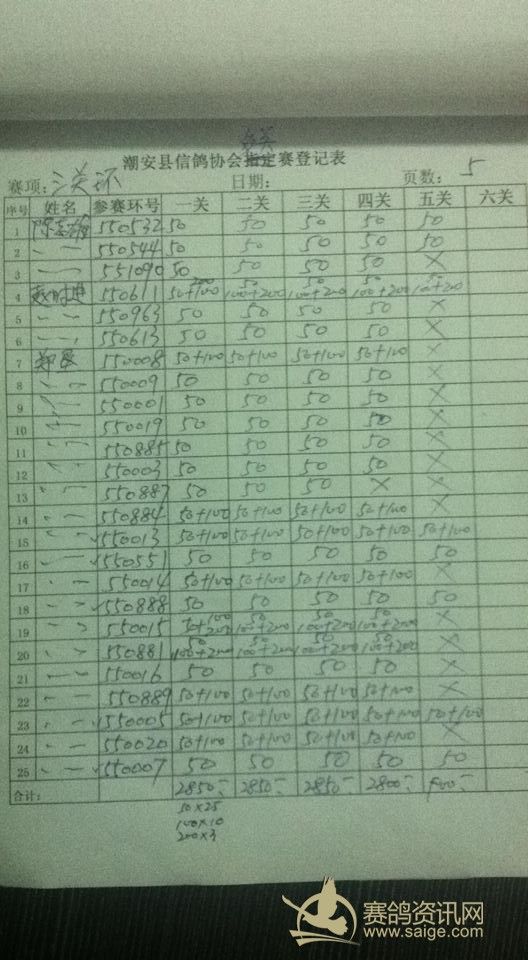 多关
潮安县信鸽协会指定赛登记表
赛项：三关环 日期： 页数：5
序号 姓名 参赛环号 一关 二关 三关 四关 五关 六关
1 550532 50 50 50 50 50
2 〃 550544 50 50 50 50 50
3 〃 551090 50 50 50 50 ×
4 550611 50+100 200 50 100+200 50 100+200 50 100+200 50 100+200
5 〃 550963 50 50 50 50 ×
6 〃 550613 50 50 50 50 ×
7 550008 50+100 50+100 50+100 50+100 ×
8 〃 550009 50 50 50 50 ×
9 〃 550001 50 50 50 50 ×
10 〃 550019 50 50 50 50 ×
11 〃 550885 50 50 50 50 ×
12 〃 550003 50 50 50 50 ×
13 〃 550887 50 50 50 × ×
14 〃 550884 50+100 50+100 50+100 50+100 ×
15 〃 550013 50+100 50+100 50+100 50+100 50+100
16 〃 550551 50 50 50 50 50
17 〃 550014 50+100 50+100 50+100 50+100 ×
18 〃 550888 50 50 50 50 50
19 〃 550015 50+100 +200 50 100+200 50 100+200 50 100+200 ×
20 〃 550881 50 100+200 50 100+200 50 100+200 50 100+200 ×
21 〃 550016 50 50 50 50 ×
22 〃 550889 50+100 50+100 50+100 50+100 ×
23 〃 550005 50+100 50+100 50+100 50+100 50+100
24 〃 550020 50+100 50+100 50+100 50+100 ×
25 〃 550007 50 50 50 50 50
合计： 2850- 2850- 2850- 2800-
50×25
100×10
200×3
赛鸽资讯网
www.saige.com